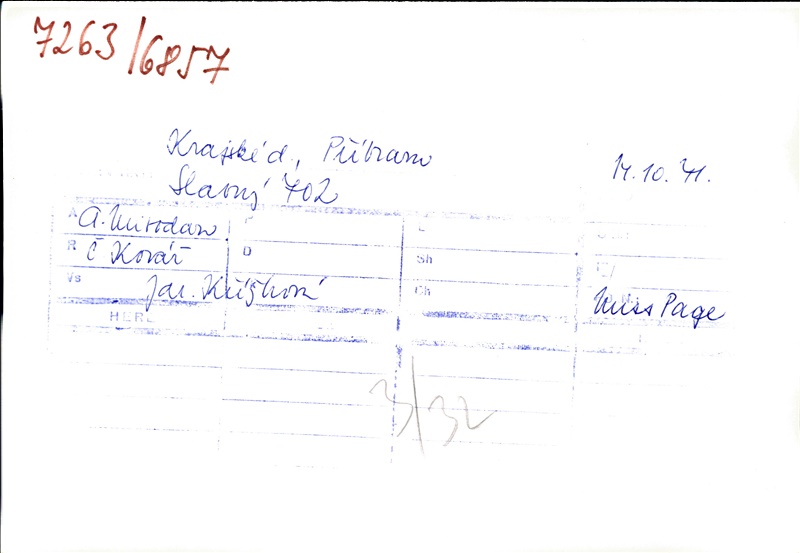 7263/6857
Krajské d., Příbram
14.10.71.
Slavný 702
A A. Mirodan
R Č Kovář
D
Sh
Vs Jar. Křižková
Ch
Miss Page
HERE
3/32